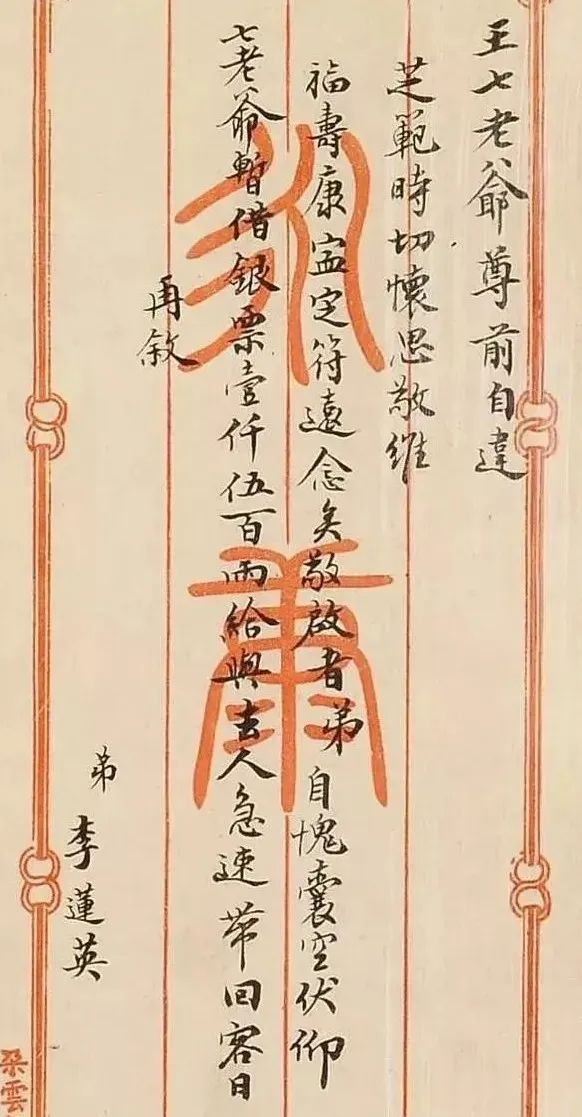 王七老爺尊前自違
芝範時切懷思敬維
福壽康寍定符遠念矣敬啟者弟自愧囊空伏仰
七老爺暫借銀票壹仟伍百兩給與去人急速帶回容日
再敘
弟
李蓮英
朶雲